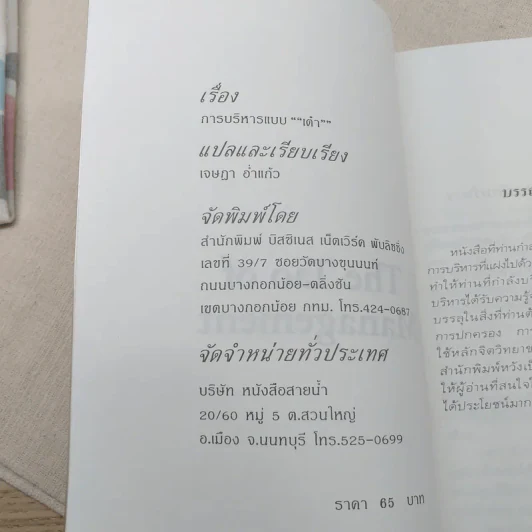 เรื่อง
การบริหารแบบ ""เต๋า""
แปลและเรียบเรียง
เจษฎา อ่ำแก้ว
จัดพิมพ์โดย
สำนักพิมพ์ บิสซิเนส เน็ตเวิร์ค พับลิชชิ่ง
เลขที่ 39/7 ซอยวัดบางขุนนนท์
ถนนบางกอกน้อย-ตลิ่งชัน
เขตบางกอกน้อย กทม. โทร.424-0687
จัดจำหน่ายทั่วประเทศ
บริษัท หนังสือสายน้ำ
20/60 หมู่ 5 ต.สวนใหญ่
อ.เมือง จ.นนทบุรี โทร.525-0699
ราคา 65 บาท
หนังสือที่ท่านกำ
การบริหารที่แฝงไปด้ว
ทำให้ท่านที่กำลังบริ
บริหารได้รับความรู้จ
บรรลุในสิ่งที่ท่านต้
การปกครอง กา
ใช้หลักจิตวิทยาข
สำนักพิมพ์หวังเป็
ให้ผู้อ่านที่สนใจไ
ได้ประโยชน์มาก